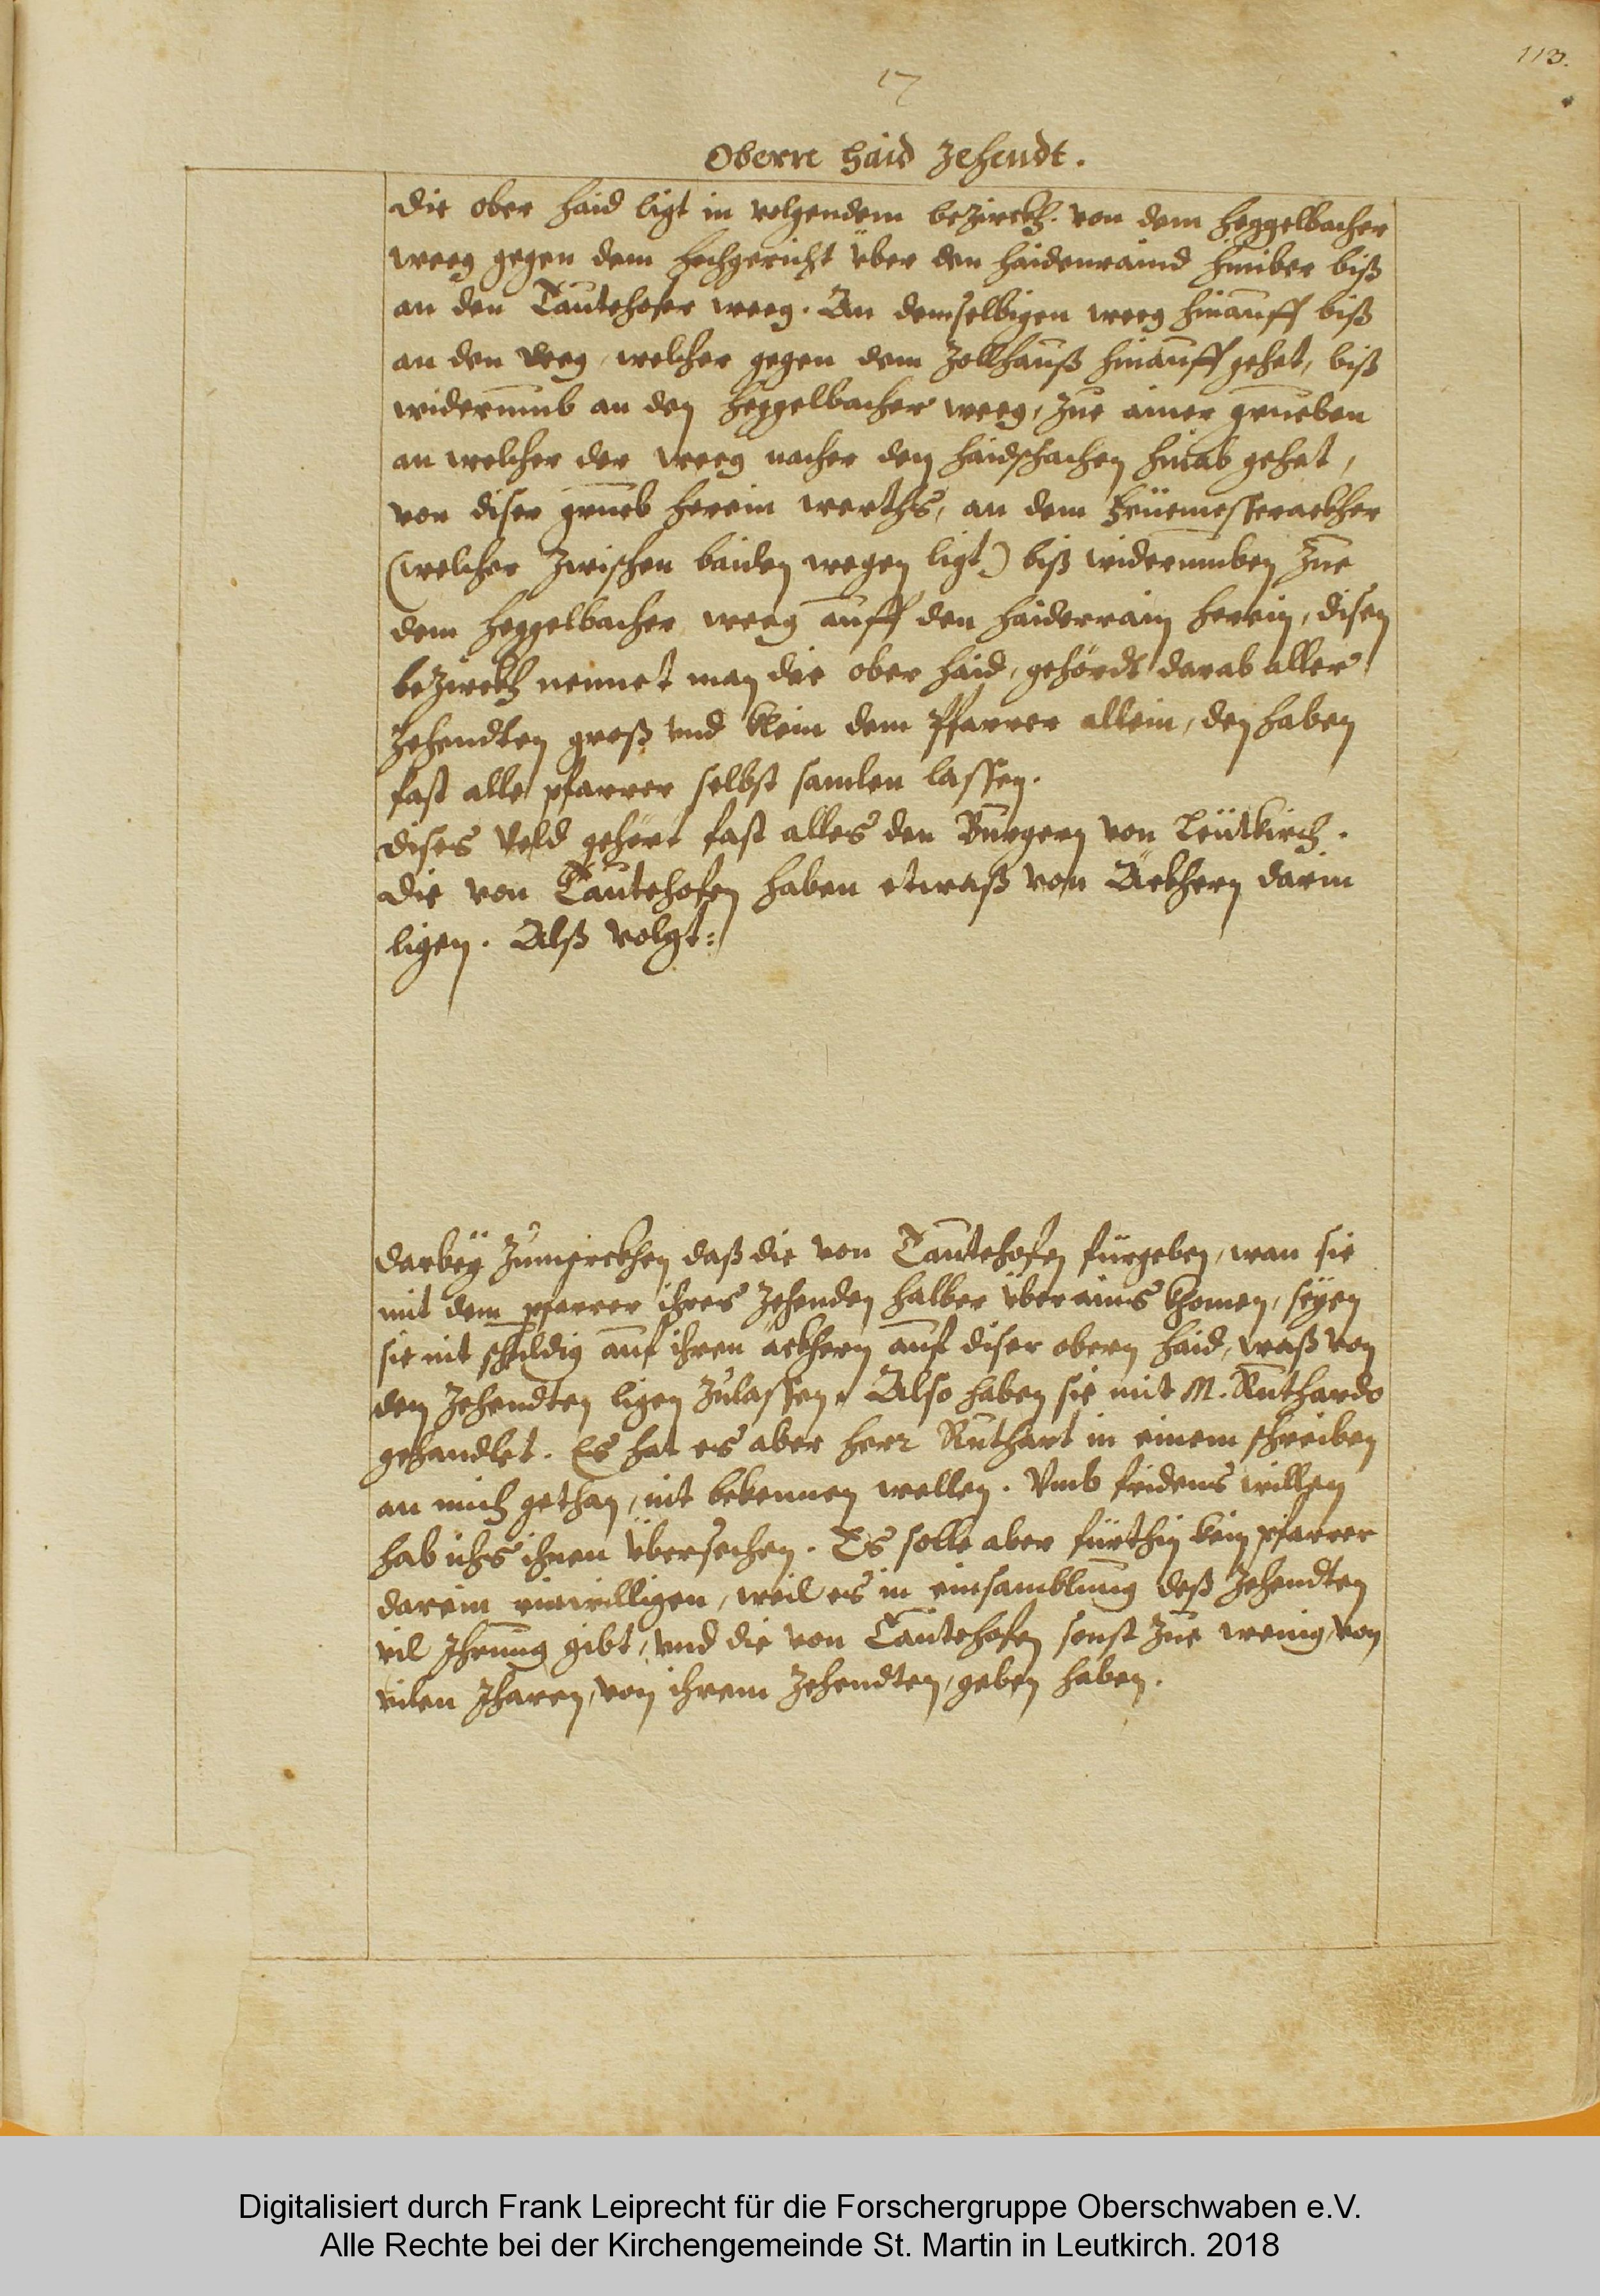 113.
17
Oberre Haid Zehendt.
Die ober Haid ligt in volgendem bezirckh. von dem Heggelbacher
weeg gegen dem hochgericht über den Haidenraind hinüber biß
an den Tautehofer weeg. An demselbigen weeg hinauff biß
an den Weg, welcher gegen dem Zollhauß hinauff gehet, biß
widerumb an den Heggelbacher weeg, zue ainer grueben
an welcher der weeg nacher den Haidschachen hinab gehet,
von diser grueb herein werths, an dem Früemesserackher
(welcher zwischen baiden wegen ligt) biß widerumben zue
dem Heggelbacher weeg auff den Haiderrain herein, disen
bezirckh nennet man die ober Haid, gehördt darab aller
Zehendten groß und klein dem Pfarrer allein, den haben
fast alle pfarrer selbst samlen lassen.
Dises Veld gehört fast alles den Burgern von Leütkirch.
Die von Tautehofen haben etwaß von Äckhern darin
ligen. Alß volgt:
Darbeÿ zumerckhen daß die von Tautehofen fürgeben, wan sie
mit dem pfarrer ihres Zehenden halber überains khomen, seÿen
sie nit schuldig auf ihren äckhern auf diser obern Haid, waß von
den Zehendten ligen zulassen. Also haben sie mit M. Ruthardo
gehandlet. Es hat es aber herr Ruthart in einem schreiben
an mich gethan, nit bekennen wellen. Umb fridens willen
hab ichs ihnen übersechen. Es solle aber fürthin kein pfarrer
darein einwilligen, weil es in einsamblung deß Zehendten
vil Ihrung gibt, und die von Tautehofen sonst zue wenig, von
vilen Jharen, von ihrem Zehendten, geben haben.
Digitalisiert durch Frank Leiprecht für die Forschergruppe Oberschwaben e.V.
Alle Rechte bei der Kirchengemeinde St. Martin in Leutkirch. 2018